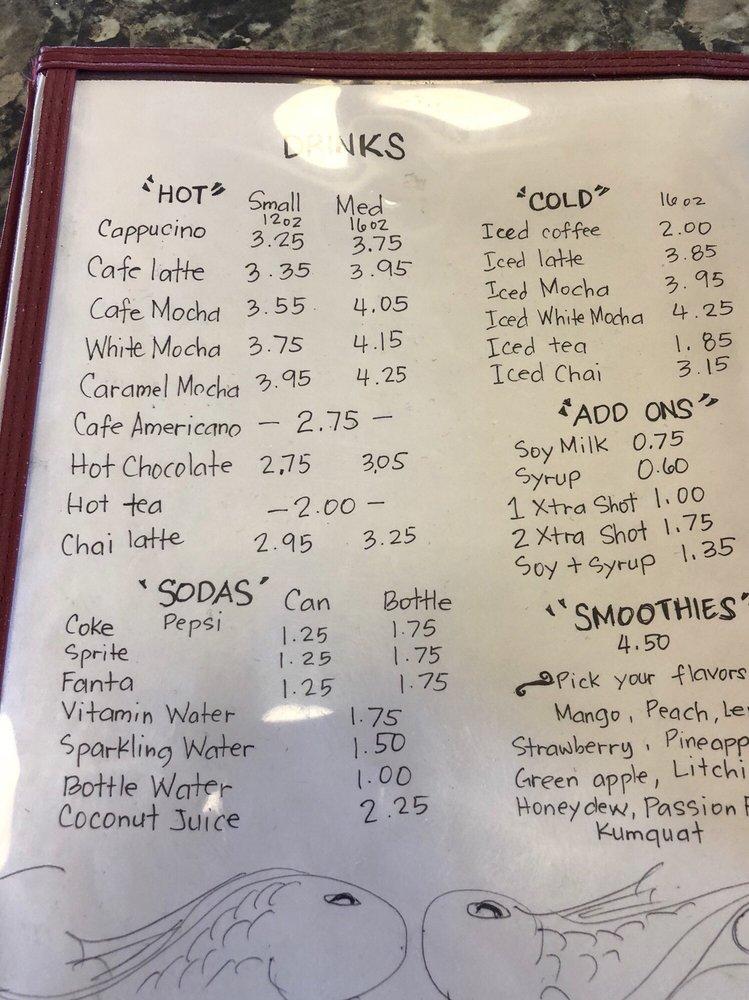 DRINKS
"HOT" Small Med
12oz 16oz
Cappucino 3.25 3.75
Cafe latte 3.35 3.95
Cafe Mocha 3.55 4.05
White Mocha 3.75 4.15
Caramel Mocha 3.95 4.25
Cafe Americano - 2.75 -
Hot Chocolate 2.75 3.05
Hot tea - 2.00 -
Chai latte 2.95 3.25
"SODAS" Can Bottle
Coke Pepsi 1.25 1.75
Sprite 1.25 1.75
Fanta 1.25 1.75
Vitamin Water 1.75
Sparkling Water 1.50
Bottle Water 1.00
Coconut Juice 2.25
"COLD" 16oz
Iced coffee 2.00
Iced latte 3.85
Iced Mocha 3.95
Iced White Mocha 4.25
Iced tea 1.85
Iced Chai 3.15
"ADD ONS"
Soy Milk 0.75
Syrup 0.60
1 Xtra Shot 1.00
2 Xtra Shot 1.75
Soy + Syrup 1.35
"SMOOTHIES"
4.50
Pick your flavors
Mango, Peach,
Strawberry,
Green apple, Litchi
Honeydew, Passion
Kumquat